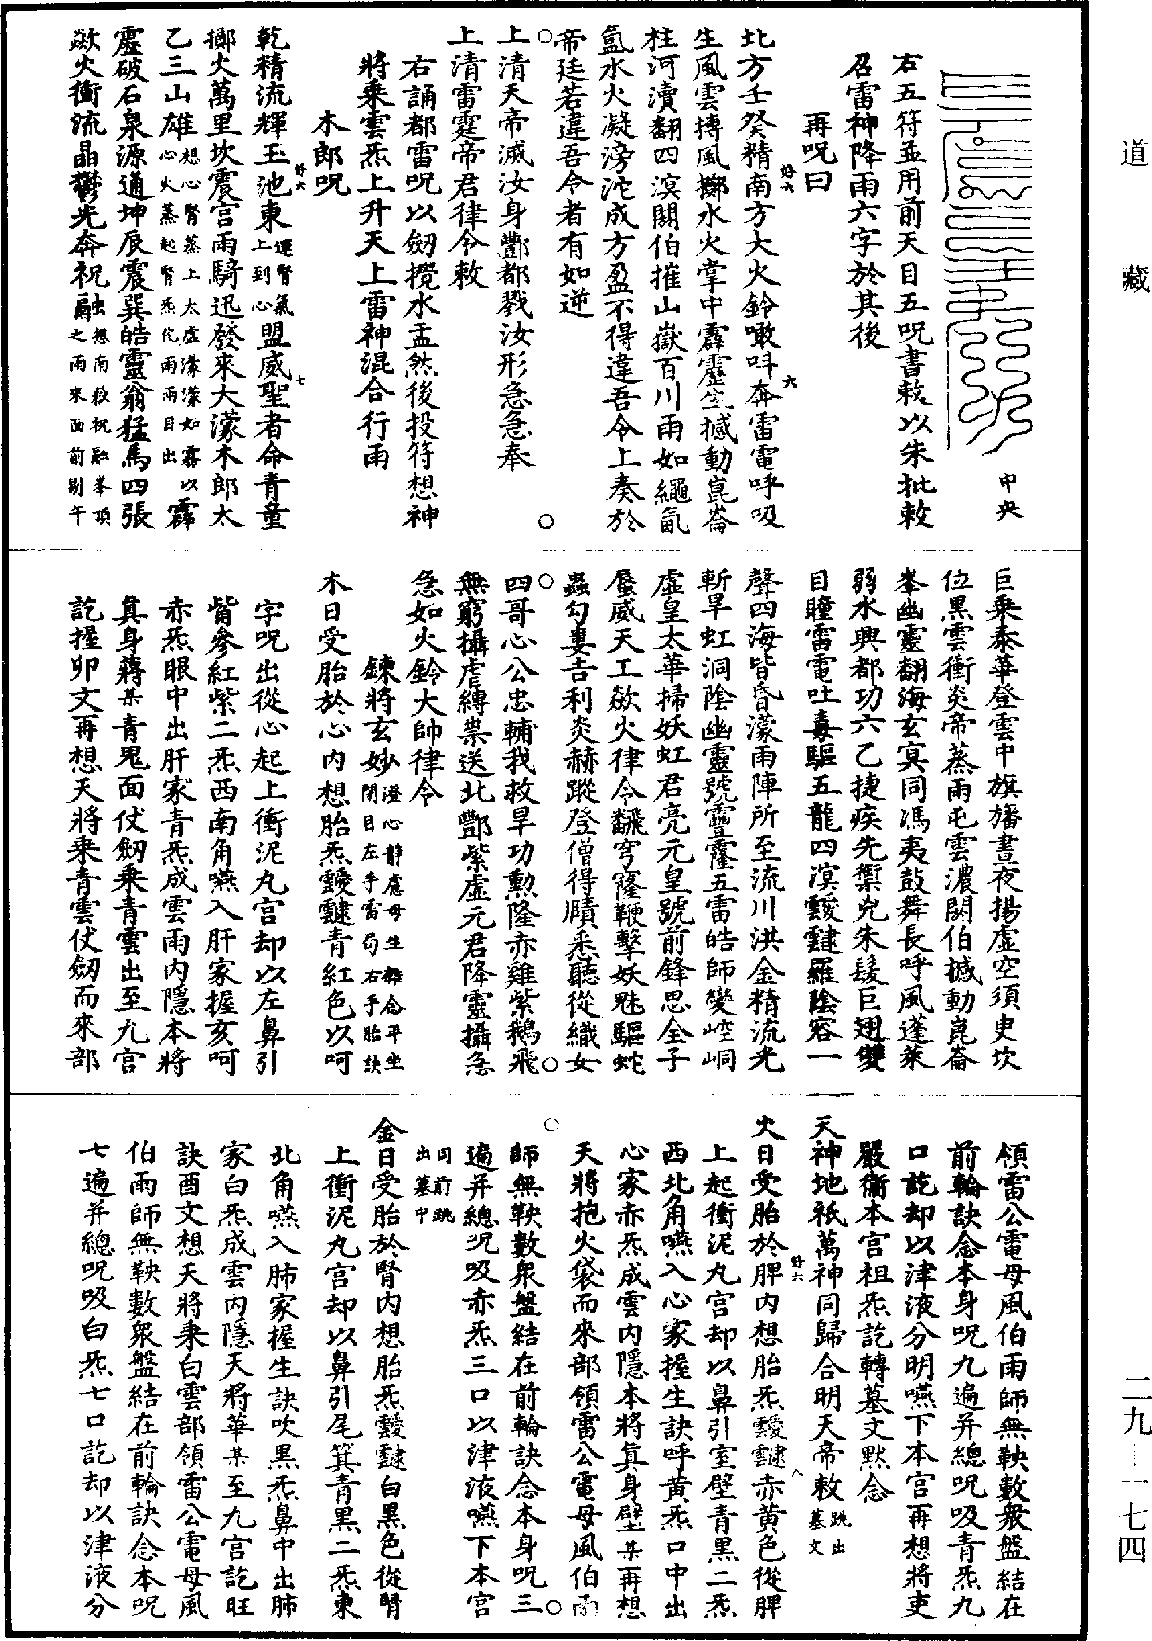 道藏
二九—一七四
中央
右五符並用前天目五呪書敕以朱批敕
召雷神降雨六字於其後
再呪曰
北方壬癸精南方大火鈴噉呌奔雷電呼吸
生風雲搏風擲水火掌中霹靂生撼動崑崙
柱河瀆翻四溟閼伯摧山嶽百川雨如繩氤
氳水火凝滂沱成方盈不得違吾令上奏於
帝廷若違吾令者有如逆
上清天帝滅汝身酆都戮汝形急急奉
上清雷霆帝君律令敕
右誦都雷呪以劒攪水盂然後投符想神
將乘雲炁上升天上雷神混合行雨
木郎呪
乾精流輝玉池東運腎氣上到心盟威聖者命青童
擲火萬里坎震宮雨騎迅發來大濛木郎太
乙三山雄想心腎蒸上太虛濛濛如霧以心火蒸起腎炁佗雨雨目出霹
靂破石泉源通坤辰震巽皓靈翁猛馬四張
歘火衝流晶鬱光奔祝融想南救祝融峯頂之雨來面前剔午
巨乘泰華登雲中旗旛晝夜揚虛空須史坎
位黑雲衝炎帝蒸雨屯雲濃閼伯撼動崑崙
峯幽靈翻海玄冥同馮夷鼓舞長呼風蓬萊
弱水興都功六乙捷疾先禦兇朱髮巨翅雙
目瞳雷電吐毒驅五龍四溟靉靆羅陰容一
聲四海皆昏濛雨陣所至流川洪金精流光
斬旱虹洞陰幽靈號豐隆五雷皓師變崆峒
虛皇太華掃妖虹君亮元皇號前鋒思全子
蜃威天工歘火律令飜穹窿鞭擊妖魅驅蛇
蟲勾婁吉利炎赫蹤登僧得臢悉聽從織女
四哥心公忠輔我救旱功勳隆赤雞紫鵝飛
無窮攝虐縛祟送北酆紫虛元君降靈攝急
急如火鈴大帥律令
鍊將玄妙澄心靜慮毋生雜念平坐閉目左手雷局右手胎訣
木日受胎於心內想胎炁靉靆青紅色以呵
字呪出從心起上衝泥丸宮却以左鼻引
觜參紅紫二炁西南角嚥入肝家握亥呵
赤炁眼中出肝家青炁成雲雨內隱本將
真身蔣某青鬼面仗劒乘青雲出至九宮
訖握卯文再想天將乘青雲仗劒而來部
領雷公電母風伯雨師無鞅數衆盤結在
前輪訣念本身呪九遍并總呪吸青炁九
口訖却以津液分明嚥下本宮再想將吏
嚴衞本宮祖炁訖轉墓文默念
天神地祇萬神同歸合明天帝敕跳出墓文
火日受胎於脾內想胎炁靉靆赤黃色從脾
上起衝泥丸宮却以鼻引室壁青黑二炁
西北角嚥入心家握生訣呼黃炁口中出
心家赤炁成雲內隱本將真身壁某再想
天將抱火袋而來部領雷公電母風伯雨
師無鞅數衆盤結在前輪訣念本身呪三
遍并總呪吸赤炁三口以津液嚥下本宮
同前跳出墓中
金日受胎於腎內想胎炁靉靆白黑色從腎
上衝泥丸宮却以鼻引尾箕青黑二炁東
北角嚥入肺家握生訣吹黑炁鼻中出肺
家白炁成雲內隱天將華某至九宮訖旺
訣酉文想天將乘白雲部領雷公電母風
伯雨師無鞅數衆盤結在前輪訣念本呪
七遍并總呪吸白炁七口訖却以津液分